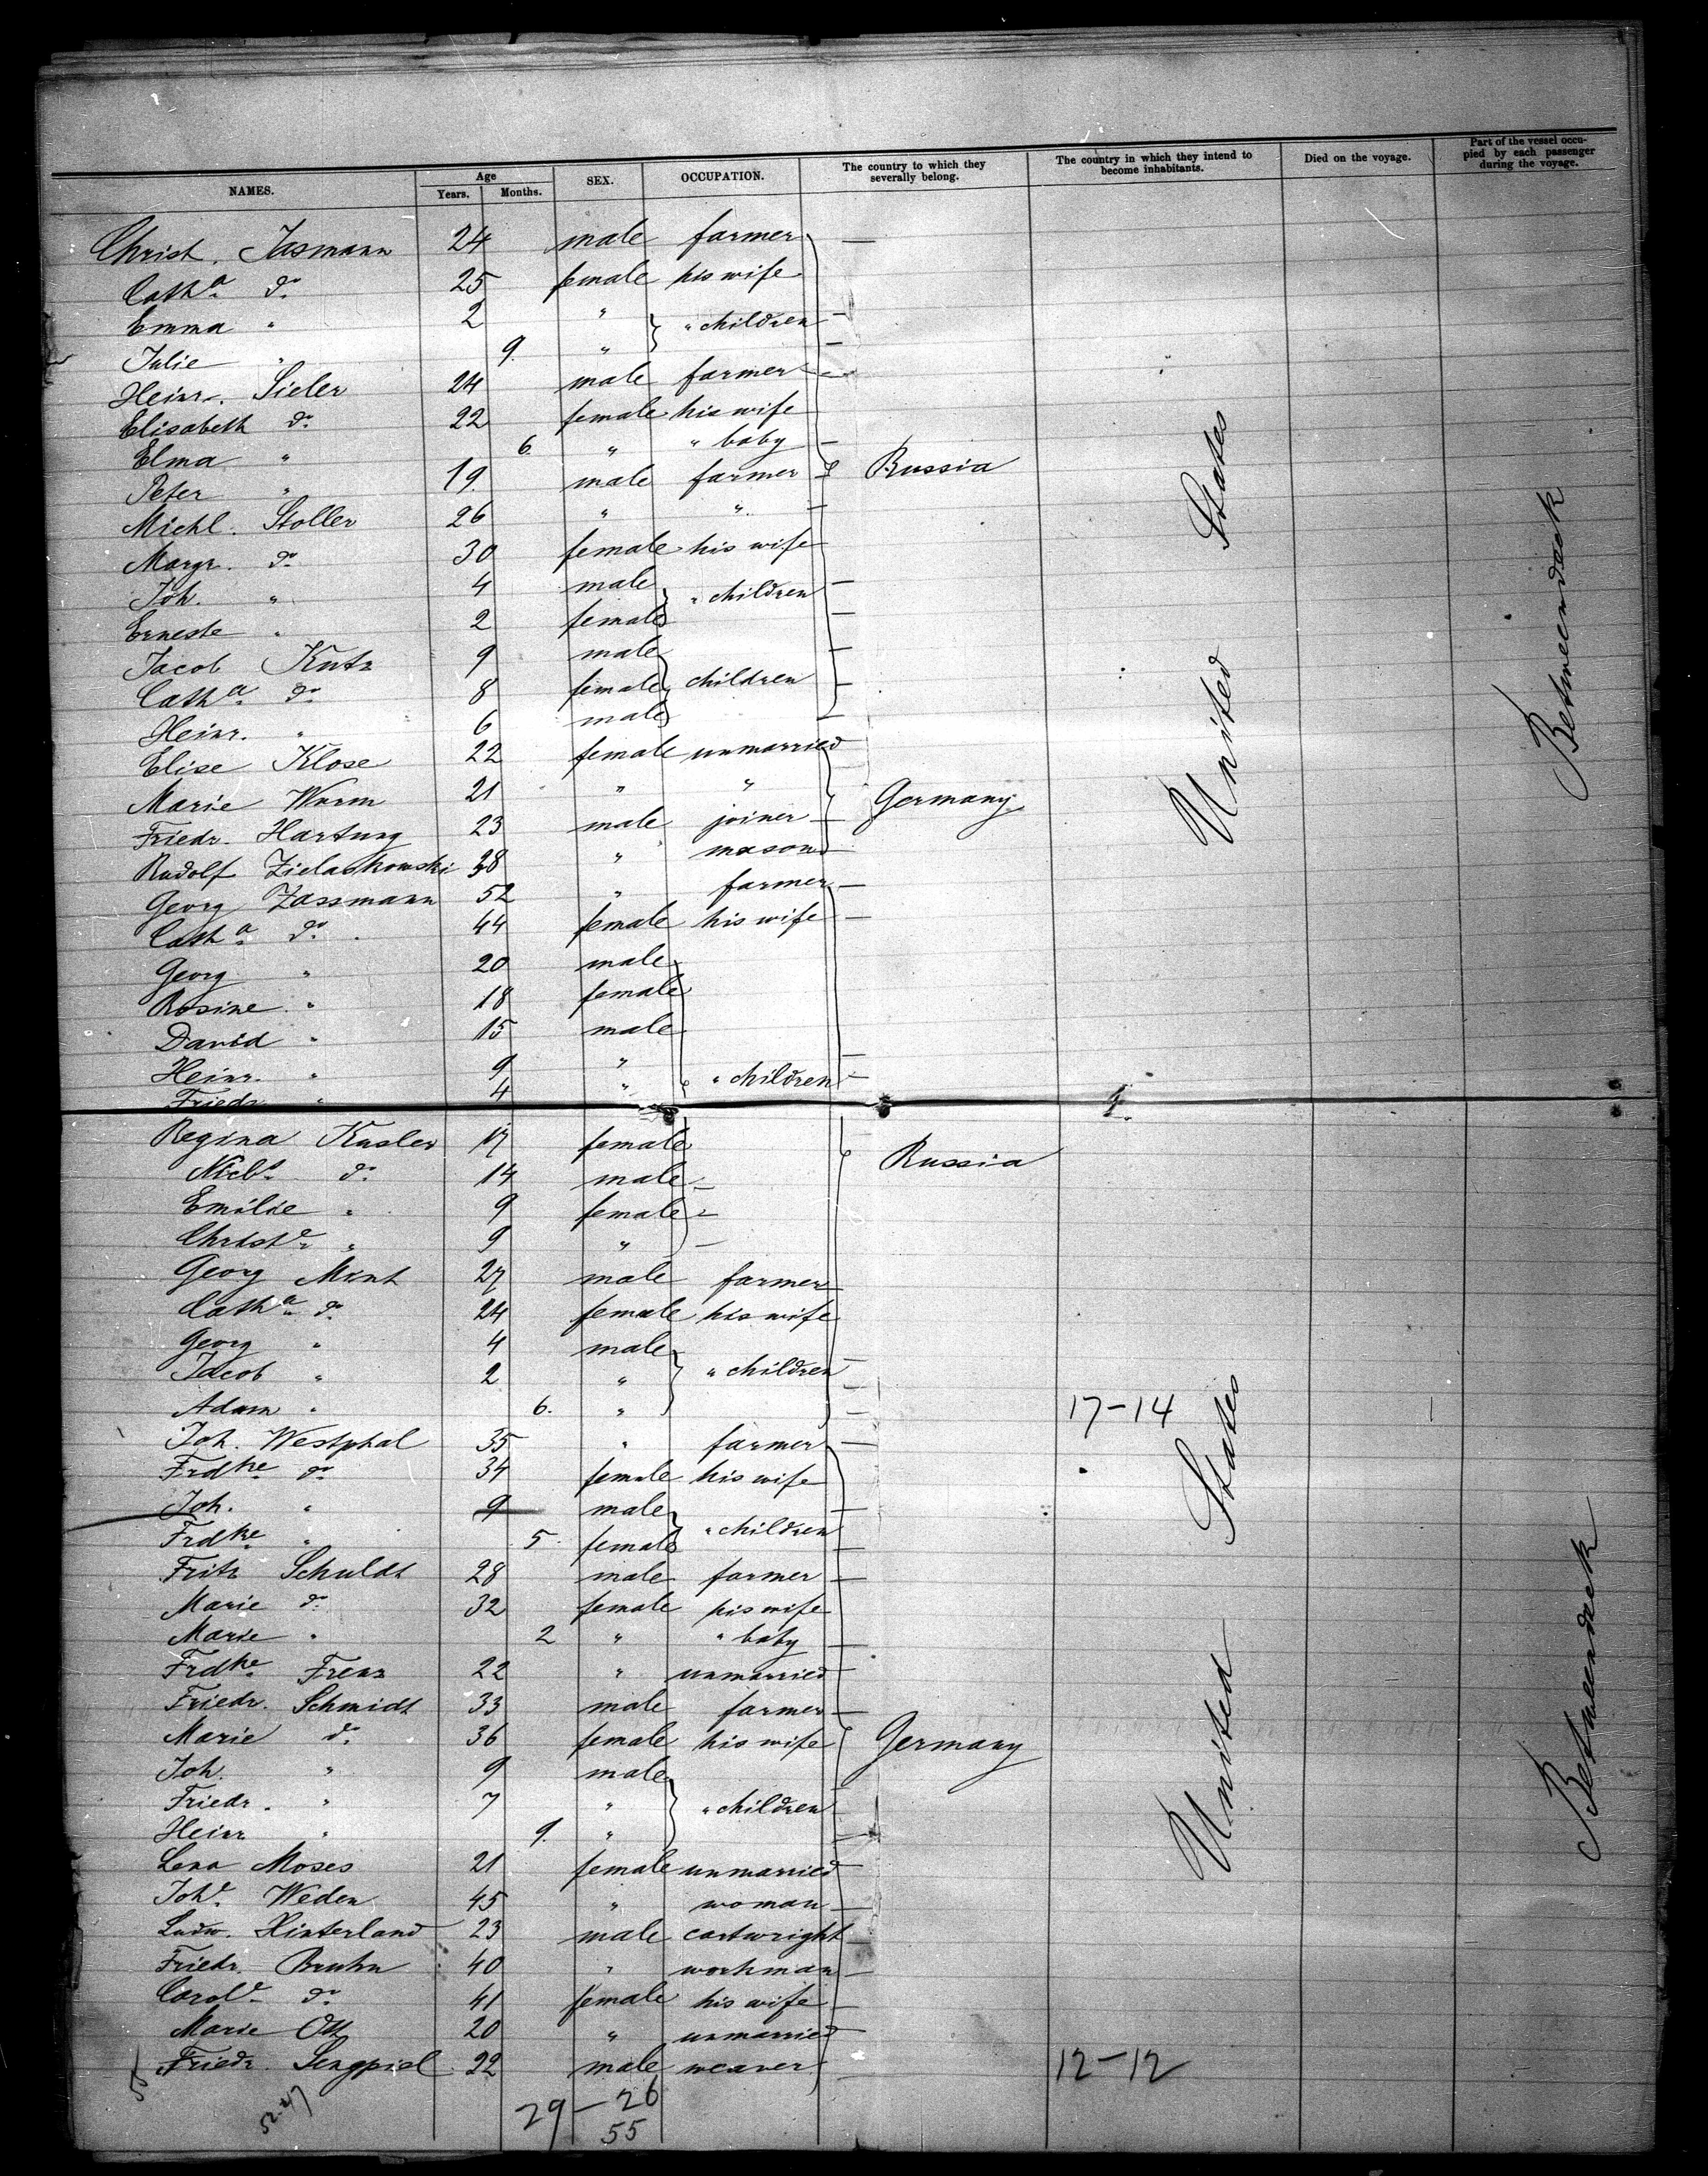 NAMES. Age Years. Months. SEX. OCCUPATION. The country to which they severally belong. The country in which they intend to become inhabitants. Died on the voyage. Part of the vessel occupied by each passenger during the voyage.
Christ. Jasmann 24 male farmer
Cath.a do 25 female his wife
Emma " 2 " " children
Julie " 9. "
Heinr. Sieler 24 male farmer
Elisabeth do 22 female his wife
Elma " 6. " " baby
Peter " 19. male farmer Russia
Michl. Stoller 26 " "
Margr. do 30 female his wife
Joh. " 4 male " children
Erneste " 2 female
Jacob Kutz 9 male
Cath.a do 8 female children
Heinr. " 6 male
Elise Klose 22 female unmarried
Marie Worm 21 " " Germany
Friedr. Hartung 23 male joiner
Rudolf Zielaskowski 28 " mason
Georg Zassmann 52 " farmer
Cath.a do 44 female his wife
Georg " 20 male
Rosine " 18 female
David " 15 male
Heinr. " 9 "
Friedr. " 4 " " children
United States
Betweendeck
Regina Kusler 17 female Russia
do 14 male
Emilie " 9 female
Christ.e " 9 "
Georg 27 male farmer
Cath.a do 24 female his wife
Georg " 4 male
Jacob " 2 " " children
Adam " 6. " 17-14
Joh. Westphal 35 " farmer
Frdke do 34 female his wife
Joh. " 9 male
Frdke " 5. female " children
Fritz Schuldt 28 male farmer
Marie do 32 female his wife
Marie " 2 " " baby
Frdke Frenz 22 " unmarried
Friedr. Schmidt 33 male farmer
Marie do 36 female his wife Germany
Joh. " 9 male
Friedr. " 7 " " children
Heinr " 9. "
Lena Moses 21 female unmarried
Joh.e Weden 45 " woman
Ludw. Hinterland 23 male cartwright
Friedr. Bruhn 40 " workman
Carol.e do 41 female his wife
Marie Ott 20 " unmarried
Friedr. Sengpiel 22 male weaver 12-12
United States
Betweendeck
29-26
55